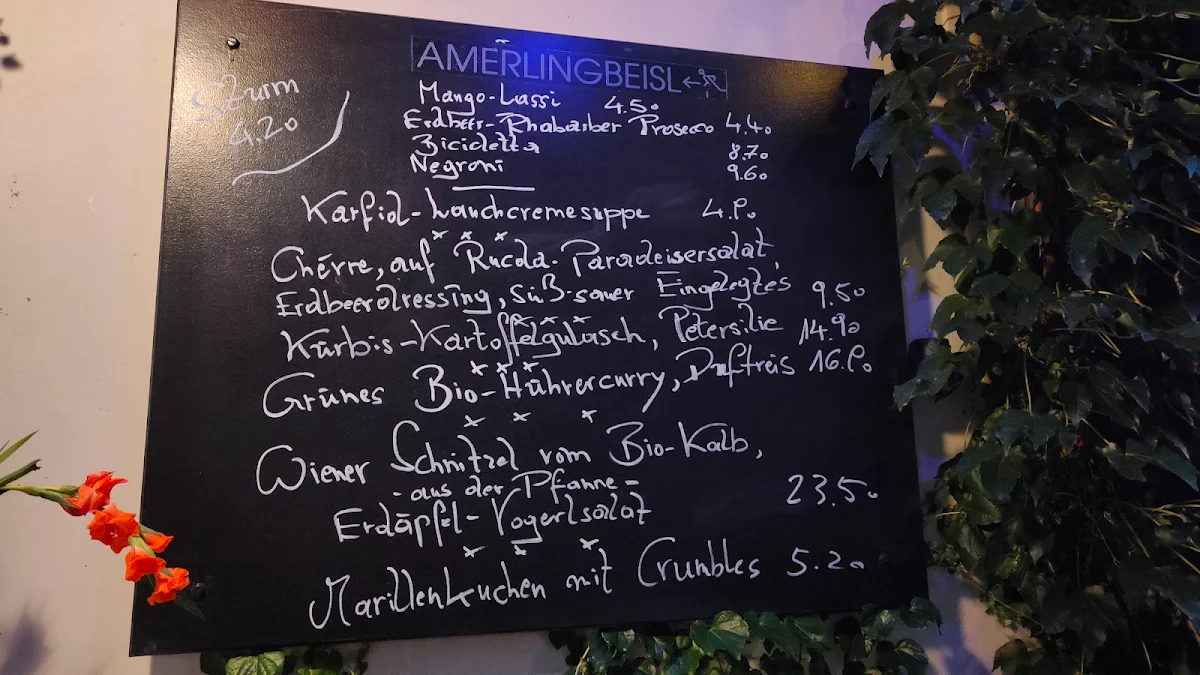 Sturm
4.20
AMERLINGBEISL
Mango-Lassi 4.50
Erdbeer-Rhabarber Prosecco 4.40
Bicicletta 8.70
Negroni 9.60
Karfiol-Lauchcremesuppe 4.80
x x x
Chévre, auf Rucola-Paradeisersalat,
Erdbeerdressing, süß-sauer Eingelegtes 9.50
x x x
Kürbis-Kartoffelgulasch, Petersilie 14.90
x x x
Grünes Bio-Hühnercurry, Duftreis 16.80
x x x
Wiener Schnitzel vom Bio-Kalb,
- aus der Pfanne -
Erdäpfel-Vogerlsalat 23.50
x x x
Marillenkuchen mit Crumbles 5.20